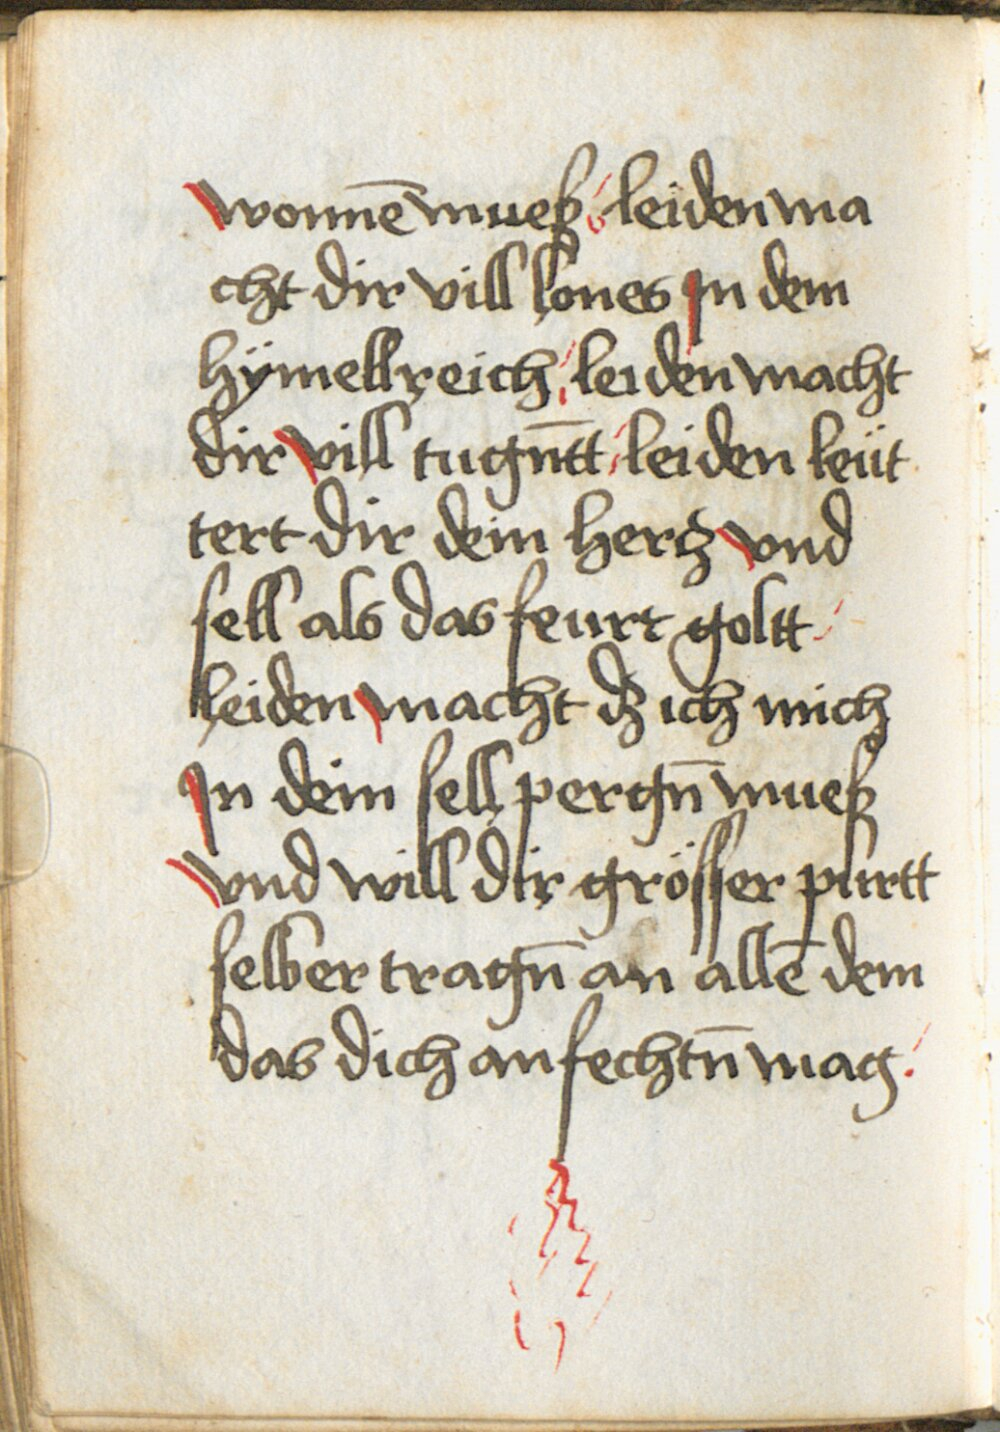 wonnē mueß leiden ma
cht dir vill lones Jn dem
hÿmellreich leiden macht
dir vill tugn̄tt leiden leüt
tert dir dein hertz vnd
sell als das feurt goltt
leiden macht dz ich mich
Jn dein sell pergn̄ mueß
vnd will dir grösser purtt
selber tragn̄ an allē dem
das dich anfechtn̄ mag